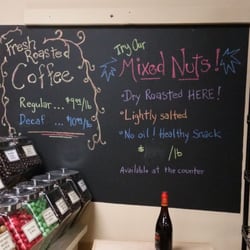 Fresh
Roasted
Coffee
Regular... $9.99/lb
Decaf ... $10.99/lb
Try Our
Mixed Nuts!
• Dry Roasted HERE!
• Lightly salted
• No oil / Healthy Snack
$ /lb
Available at the counter